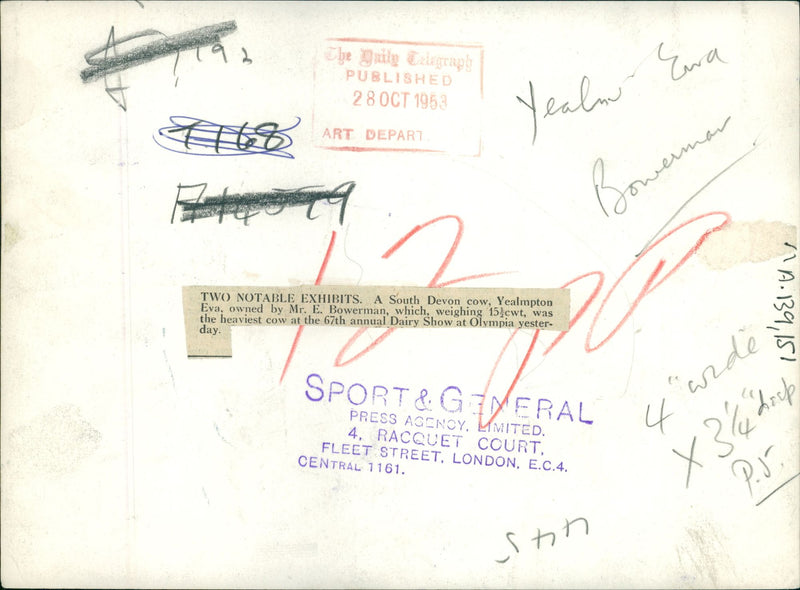 1192
The Daily Telegraph
PUBLISHED
28 OCT 1953
ART DEPART.
Yealm Eva
Bowerman
1168
A14079
TWO NOTABLE EXHIBITS. A South Devon cow, Yealmpton
Eva, owned by Mr. E. Bowerman, which, weighing 15¾cwt, was
the heaviest cow at the 67th annual Dairy Show at Olympia yester-
day.
SPORT & GENERAL
PRESS AGENCY, LIMITED.
4, RACQUET COURT,
FLEET STREET, LONDON, E.C.4.
CENTRAL 1161.
4" wide
X 3¼" deep
P.5.